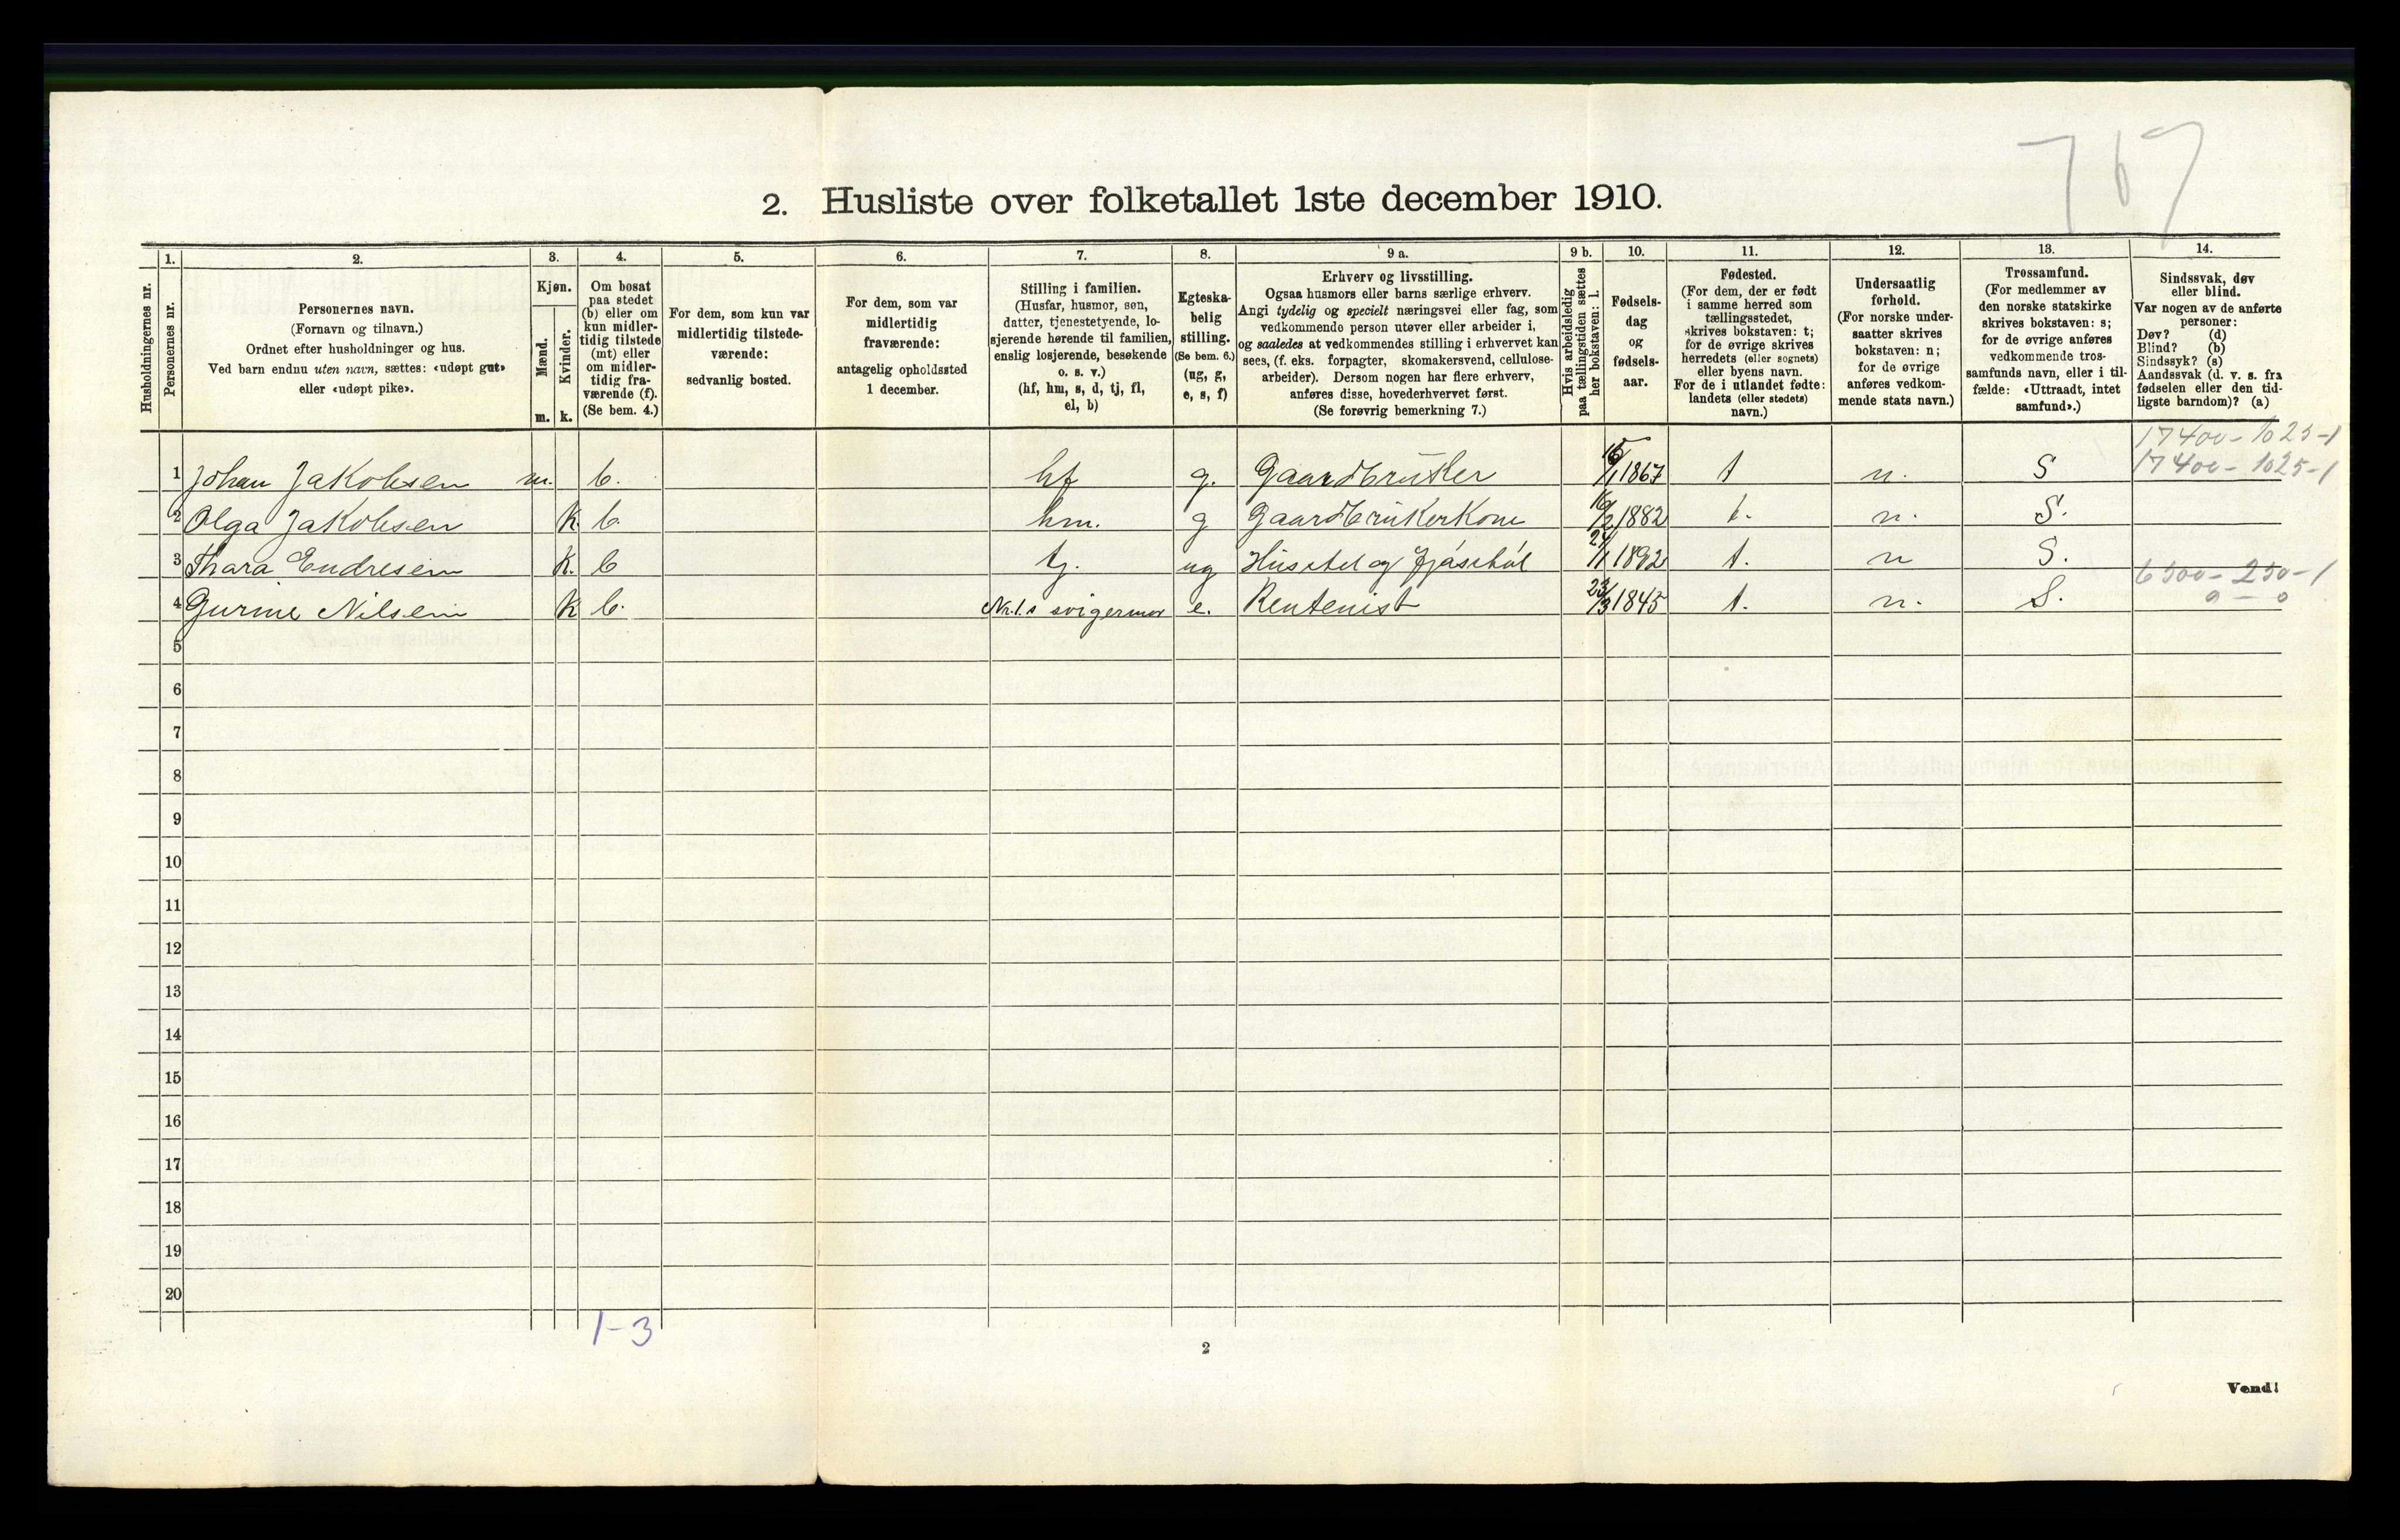 767
2. Husliste over folketallet 1ste december 1910.
Husholdningernes nr.
1.
Personernes nr.
2.
Personernes navn.
(Fornavn og tilnavn.)
Ordnet efter husholdninger og hus.
Ved barn endnu uten navn, sættes: «udøpt gut»
eller «udøpt pike».
3.
Kjøn.
Mænd.
m.
Kvinder.
k.
4.
Om bosat
paa stedet
(b) eller om
kun midler-
tidig tilstede
(mt) eller
om midler-
tidig fra-
værende (f).
(Se bem. 4.)
5.
For dem, som kun var
midlertidig tilstede-
værende:
sedvanlig bosted.
6.
For dem, som var
midlertidig
fraværende:
antagelig opholdssted
1 december.
7.
Stilling i familien.
(Husfar, husmor, søn,
datter, tjenestetyende, lo-
sjerende hørende til familien,
enslig losjerende, besøkende
o. s. v.)
(hf, hm, s, d, tj, fl,
el, b)
8.
Egteska-
belig
stilling.
(Se bem. 6.)
(ug, g,
e, s, f)
9 a.
Erhverv og livsstilling.
Ogsaa husmors eller barns særlige erhverv.
Angi tydelig og specielt næringsvei eller fag, som
vedkommende person utøver eller arbeider i,
og saaledes at vedkommendes stilling i erhvervet kan
sees, (f. eks. forpagter, skomakersvend, cellulose-
arbeider). Dersom nogen har flere erhverv,
anføres disse, hovederhvervet først.
(Se forøvrig bemerkning 7.)
9 b.
Hvis arbeidsledig
paa tællingstiden sættes
her bokstaven: l.
10.
Fødsels-
dag
og
fødsels-
aar.
11.
Fødested.
(For dem, der er født
i samme herred som
tællingsstedet,
skrives bokstaven: t;
for de øvrige skrives
herredets (eller sognets)
eller byens navn.
For de i utlandet fødte:
landets (eller stedets)
navn.)
12.
Undersaatlig
forhold.
(For norske under-
saatter skrives
bokstaven: n;
for de øvrige
anføres vedkom-
mende stats navn.)
13.
Trossamfund.
(For medlemmer av
den norske statskirke
skrives bokstaven: s;
for de øvrige anføres
vedkommende tros-
samfunds navn, eller i til-
fælde: «Uttraadt, intet
samfund».)
14.
Sindssvak, døv
eller blind.
Var nogen av de anførte
personer:
Døv? (d)
Blind? (b)
Sindssyk? (s)
Aandssvak (d. v. s. fra
fødselen eller den tid-
ligste barndom)? (a)
17400-1025-1
1 Johan Jakobsen m. b. hf g. Gaardbruker 1867 t n. S 17400-1025-1
2 Olga Jakobsen K. b. hm. g Gaardbrukerkone 16/2 1882 t. n. S.
3 Thara Endresen K. b tj. ug Husstel og 1892 t. n S.
6500-250-1
4 Gurine Nilsen K b. Nr.1.s svigermor e. Rentenist 23/3 1845 t. n. S. 0-0
5
6
7
8
9
10
11
12
13
14
15
16
17
18
19
20
1-3
2
Vend!